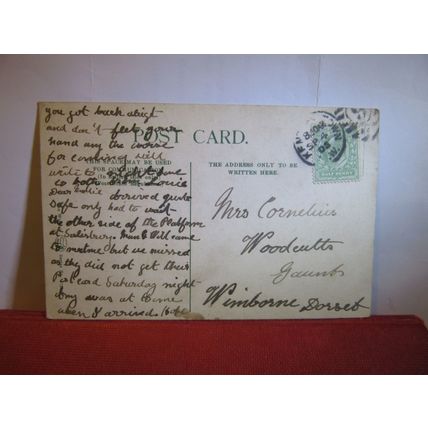 you got back alright
and don't feel your
hand any the worse
for carving will
write to
to both Louie
Dear Sallie arrived quite
safe only had to wait
the other side of the Platform
at Salisbury. Mum & Bill came
to metme but we missed
as they did not get their
Postcard Saturday night
Amy was at home
when I arrived. Hope
POST CARD.
THIS SPACE MAY BE USED
THE ADDRESS ONLY TO BE
WRITTEN HERE.
HALF PENNY
Mrs Cornelius
Woodcutts
Gaunts
Wimborne Dorset